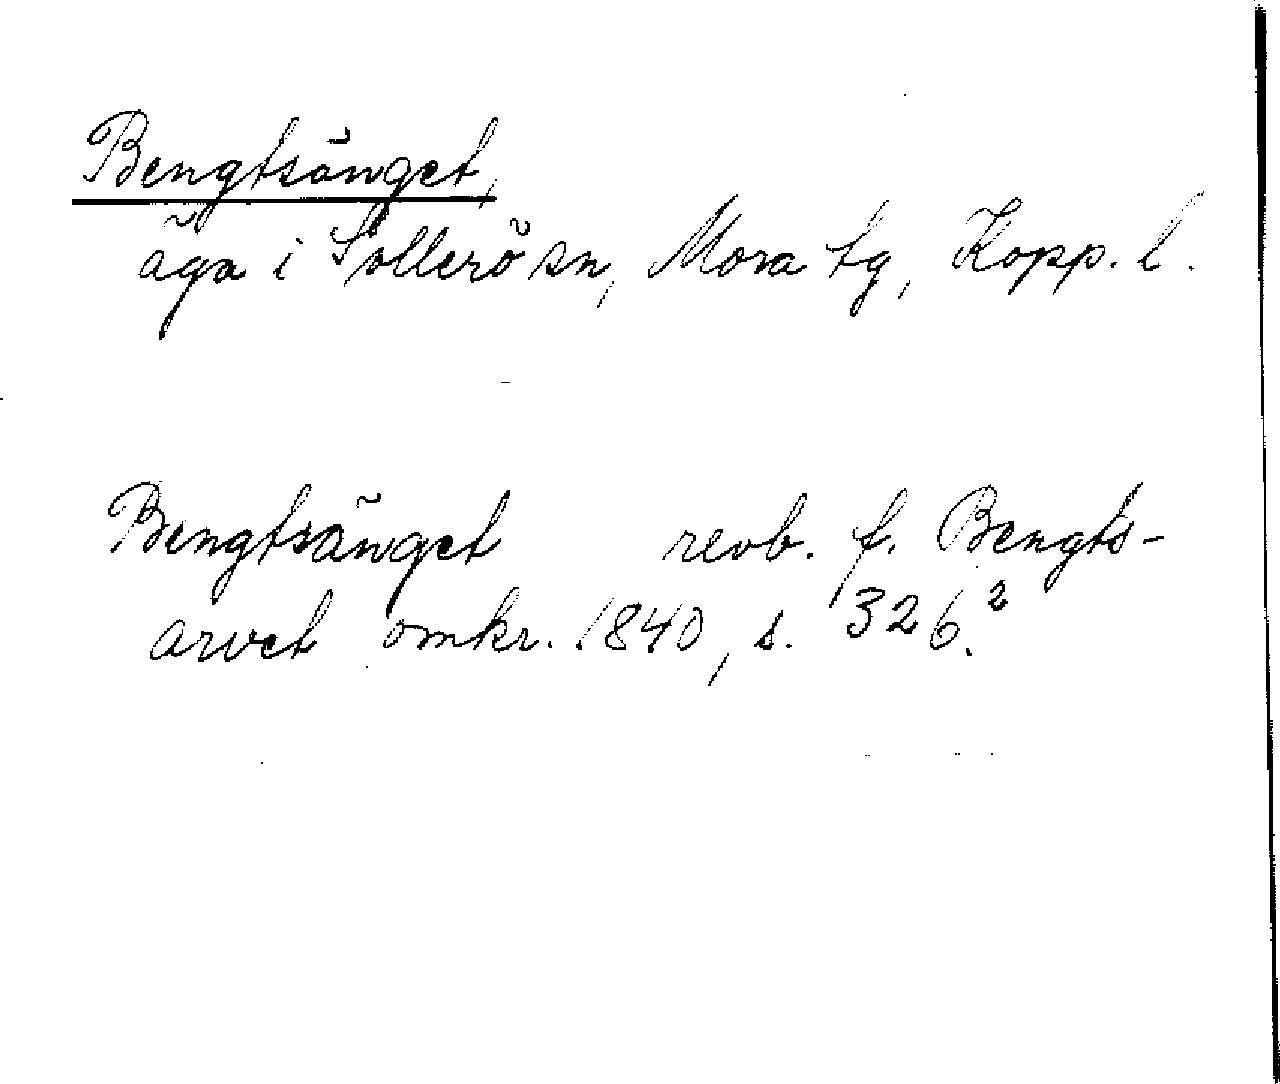 Bengtsänget,
äga i Sollerö sn, Mora tg, Kopp. l.
Bengtsänget revb. f. Bengts-
arvet omkr. 1840, s. 326.²